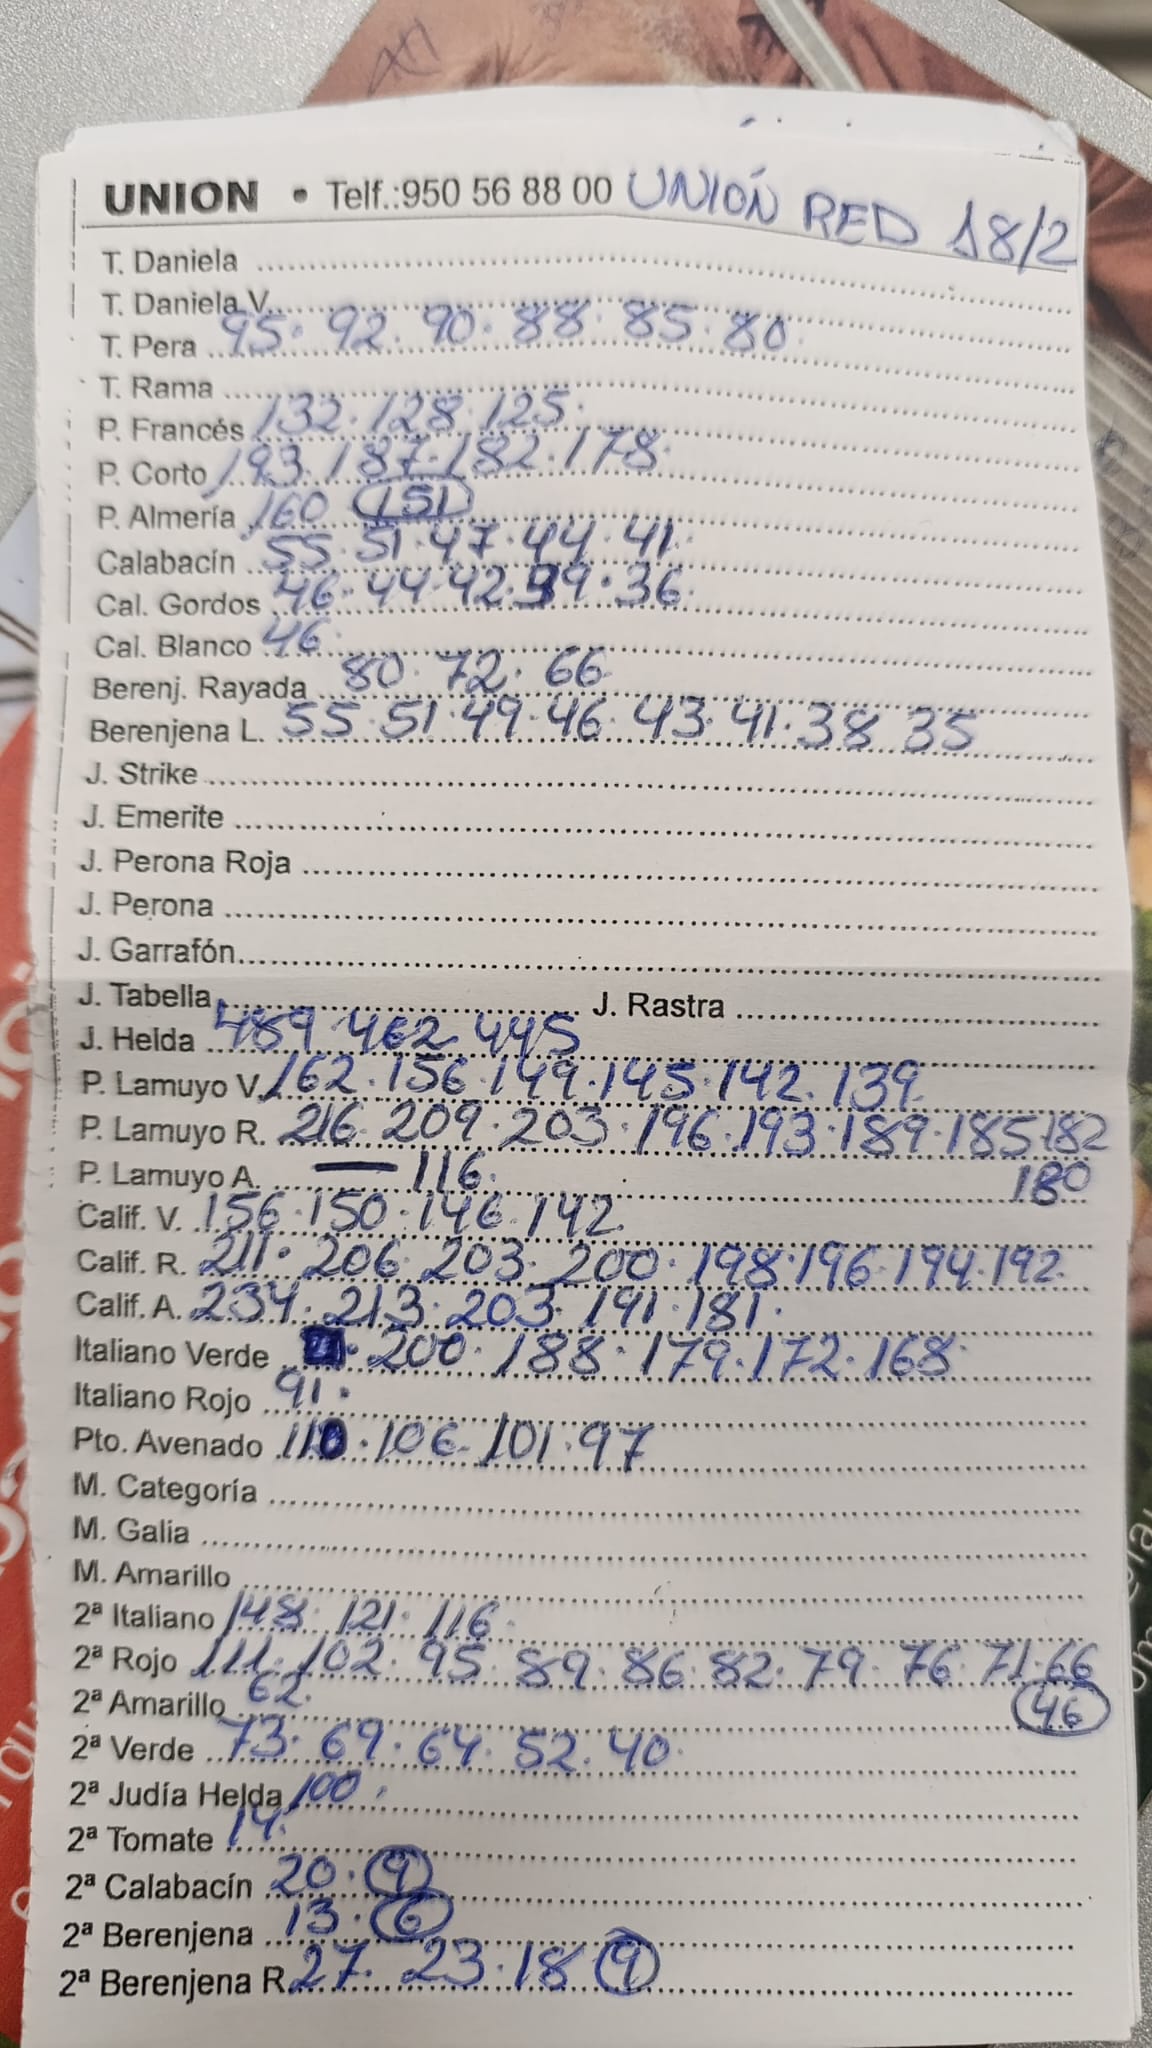 UNION • Telf.:950 56 88 00 UNIÓN RED 18/2
T. Daniela
T. Daniela V.
T. Pera 95. 92. 90. 88. 85. 80.
T. Rama
P. Francés 132. 128. 125.
P. Corto 193. 187. 182. 178.
P. Almería 160 151
Calabacín 55. 51. 47. 44. 41.
Cal. Gordos 46. 44. 42. 39. 36.
Cal. Blanco 46.
Berenj. Rayada 80. 72. 66
Berenjena L. 55. 51. 49. 46. 43. 41. 38 35
J. Strike
J. Emerite
J. Perona Roja
J. Perona
J. Garrafón
J. Tabella J. Rastra
J. Helda 489 462 445
P. Lamuyo V. 162. 156. 149. 145. 142. 139.
P. Lamuyo R. 216. 209. 203. 196. 193. 189. 185. 182
P. Lamuyo A. — 116. 180
Calif. V. 156. 150. 146. 142.
Calif. R. 211. 206. 203. 200. 198. 196. 194. 192.
Calif. A. 234. 213. 203. 191. 181.
Italiano Verde 200. 188. 179. 172. 168.
Italiano Rojo 91.
Pto. Avenado 110. 106. 101. 97
M. Categoría
M. Galia
M. Amarillo
2ª Italiano 148. 121. 116.
2ª Rojo 111. 102. 95. 89. 86. 82. 79. 76. 71. 66
2ª Amarillo 62. 46
2ª Verde 73. 69. 64. 52. 40.
2ª Judía Helda 100.
2ª Tomate 14.
2ª Calabacín 20. 9
2ª Berenjena 13. 6
2ª Berenjena R. 27. 23. 18 9